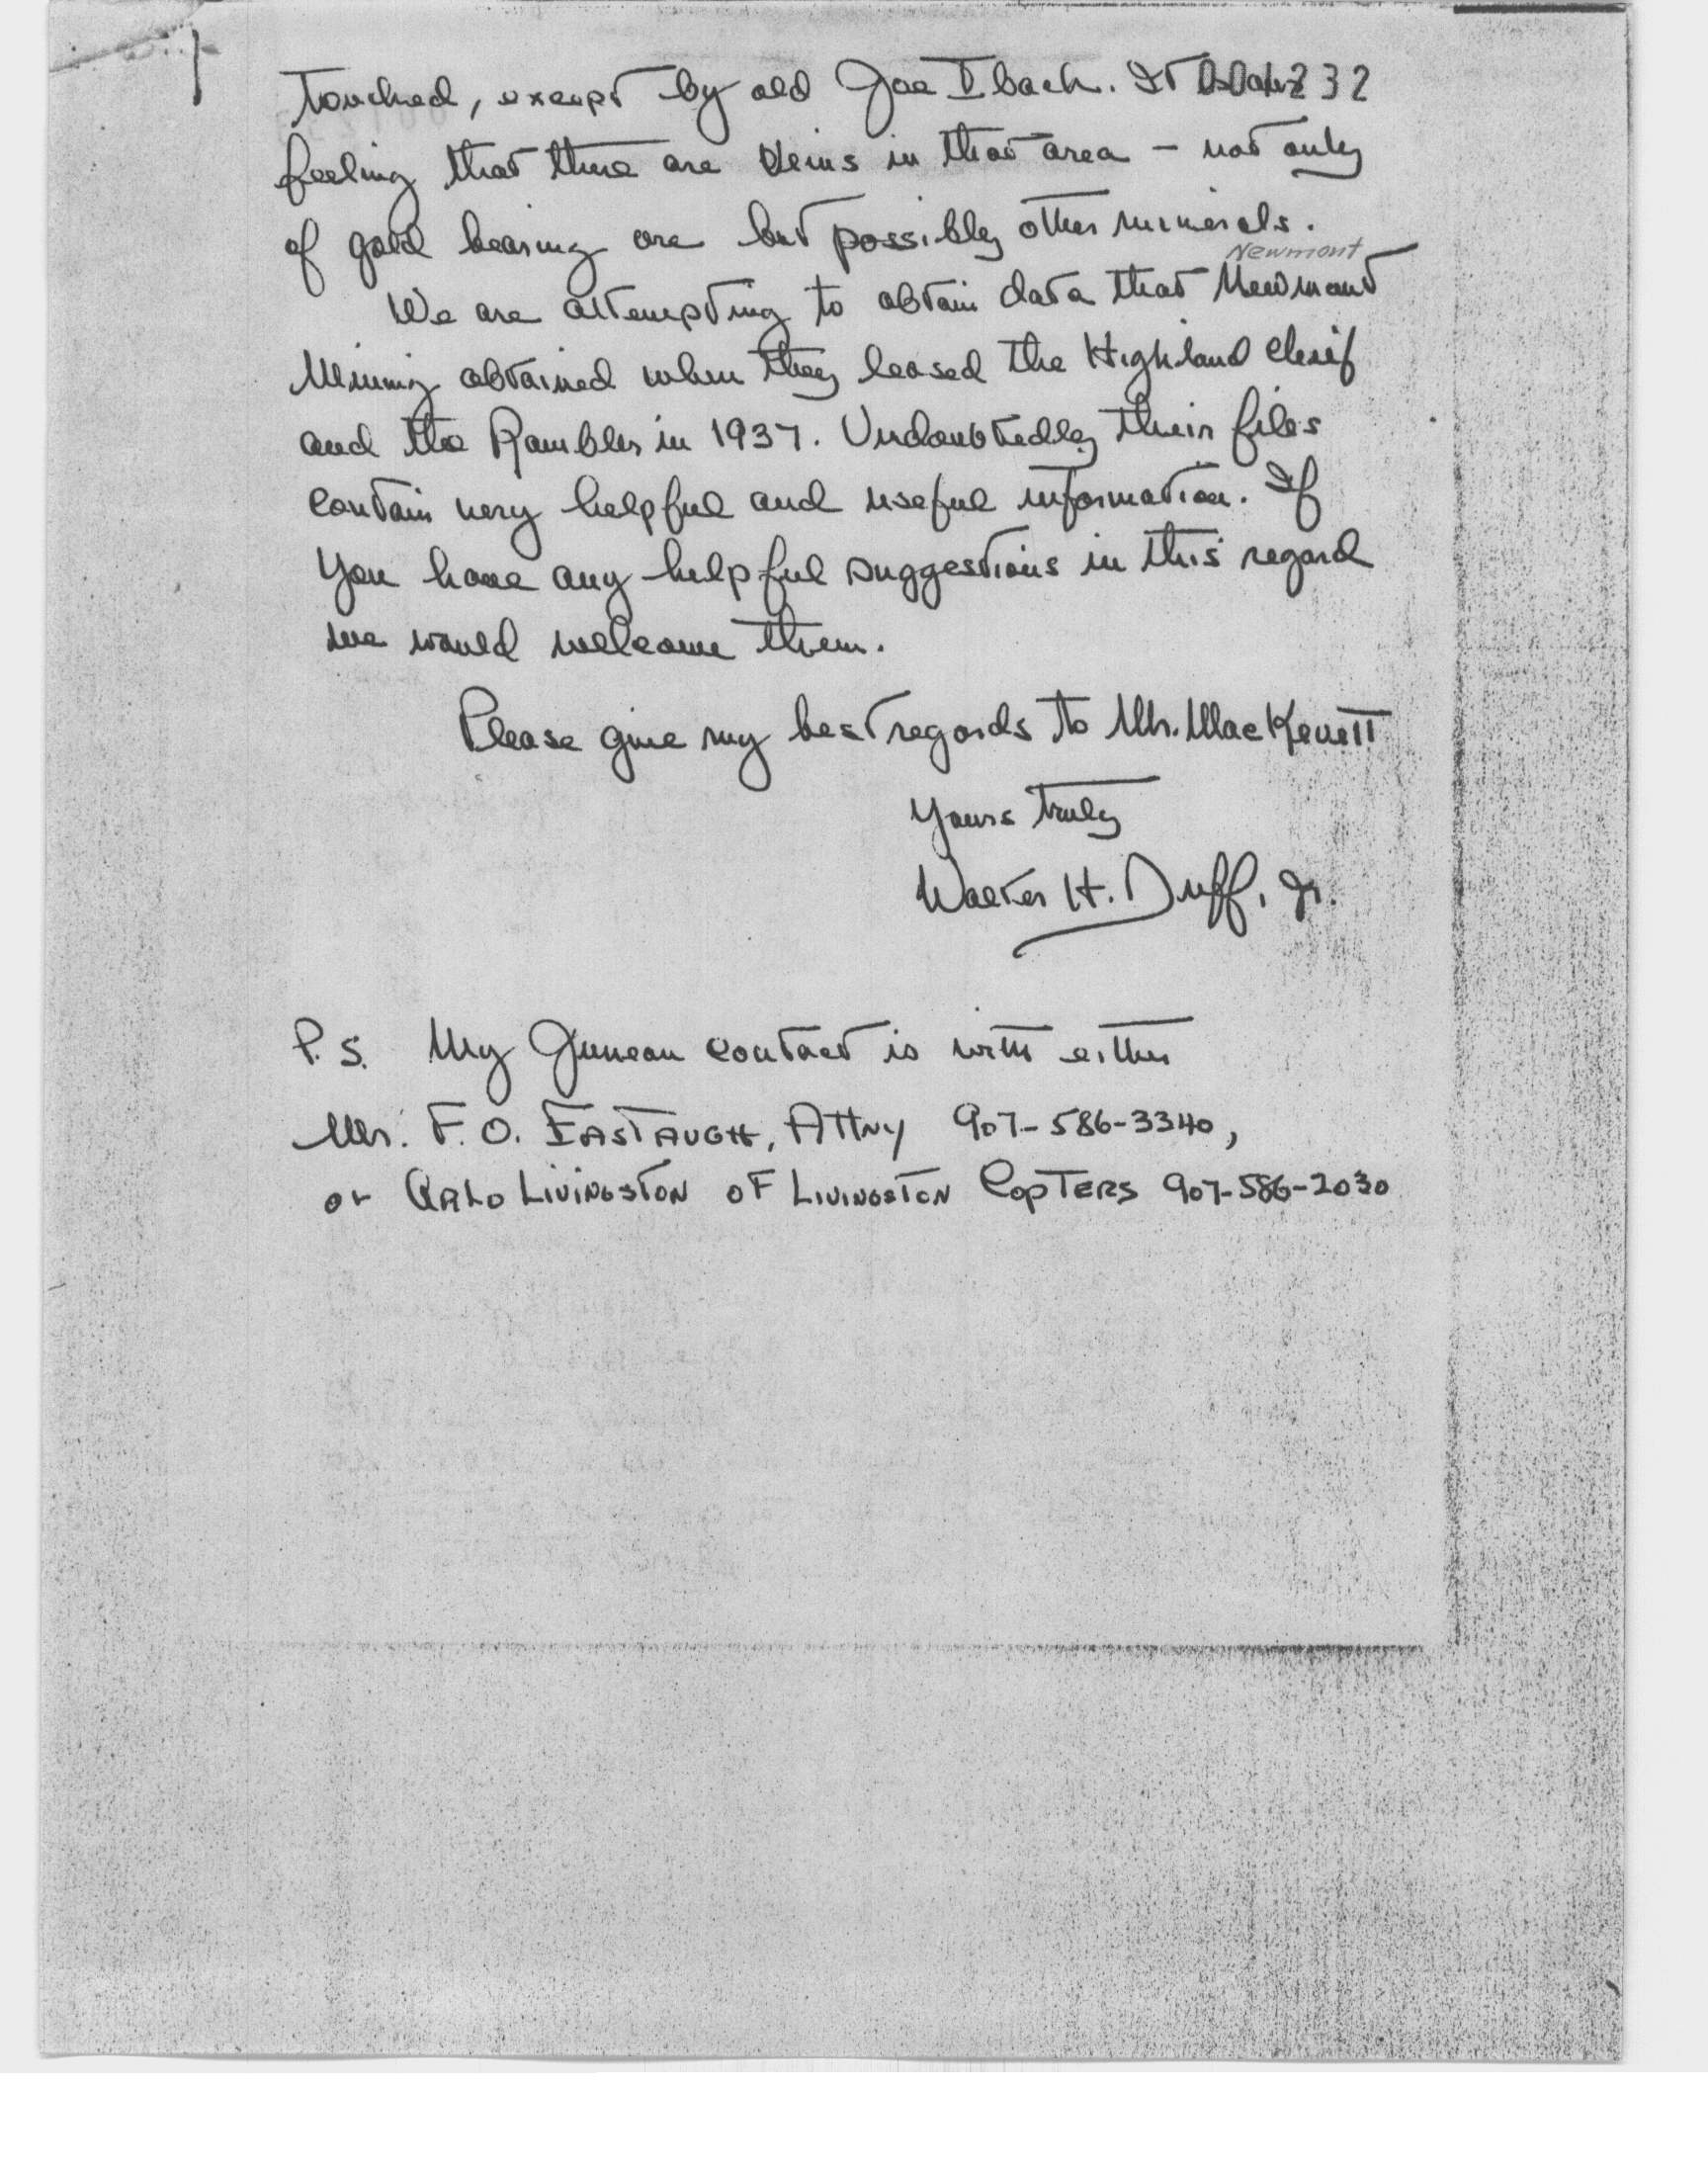 touched, except by old Joe Ibach. It 232
feeling that there are veins in that area – not only
of gold bearing ore but possibly other minerals.
Newmont
We are attempting to obtain data that Newmont
Mining obtained when they leased the Highland Cheif
and the Rambler in 1937. Undoubtedly their files
contain very helpful and useful information. If
you have any helpful suggestions in this regard
we would welcome them.
Please give my best regards to Mr. MacKevett
Yours truly
Walter H. Duff, Jr.
P.S. My Juneau contact is with either
Mr. F.O. EASTAUGH, Attny 907-586-3340,
or ARLO LIVINGSTON OF LIVINGSTON COPTERS 907-586-2030